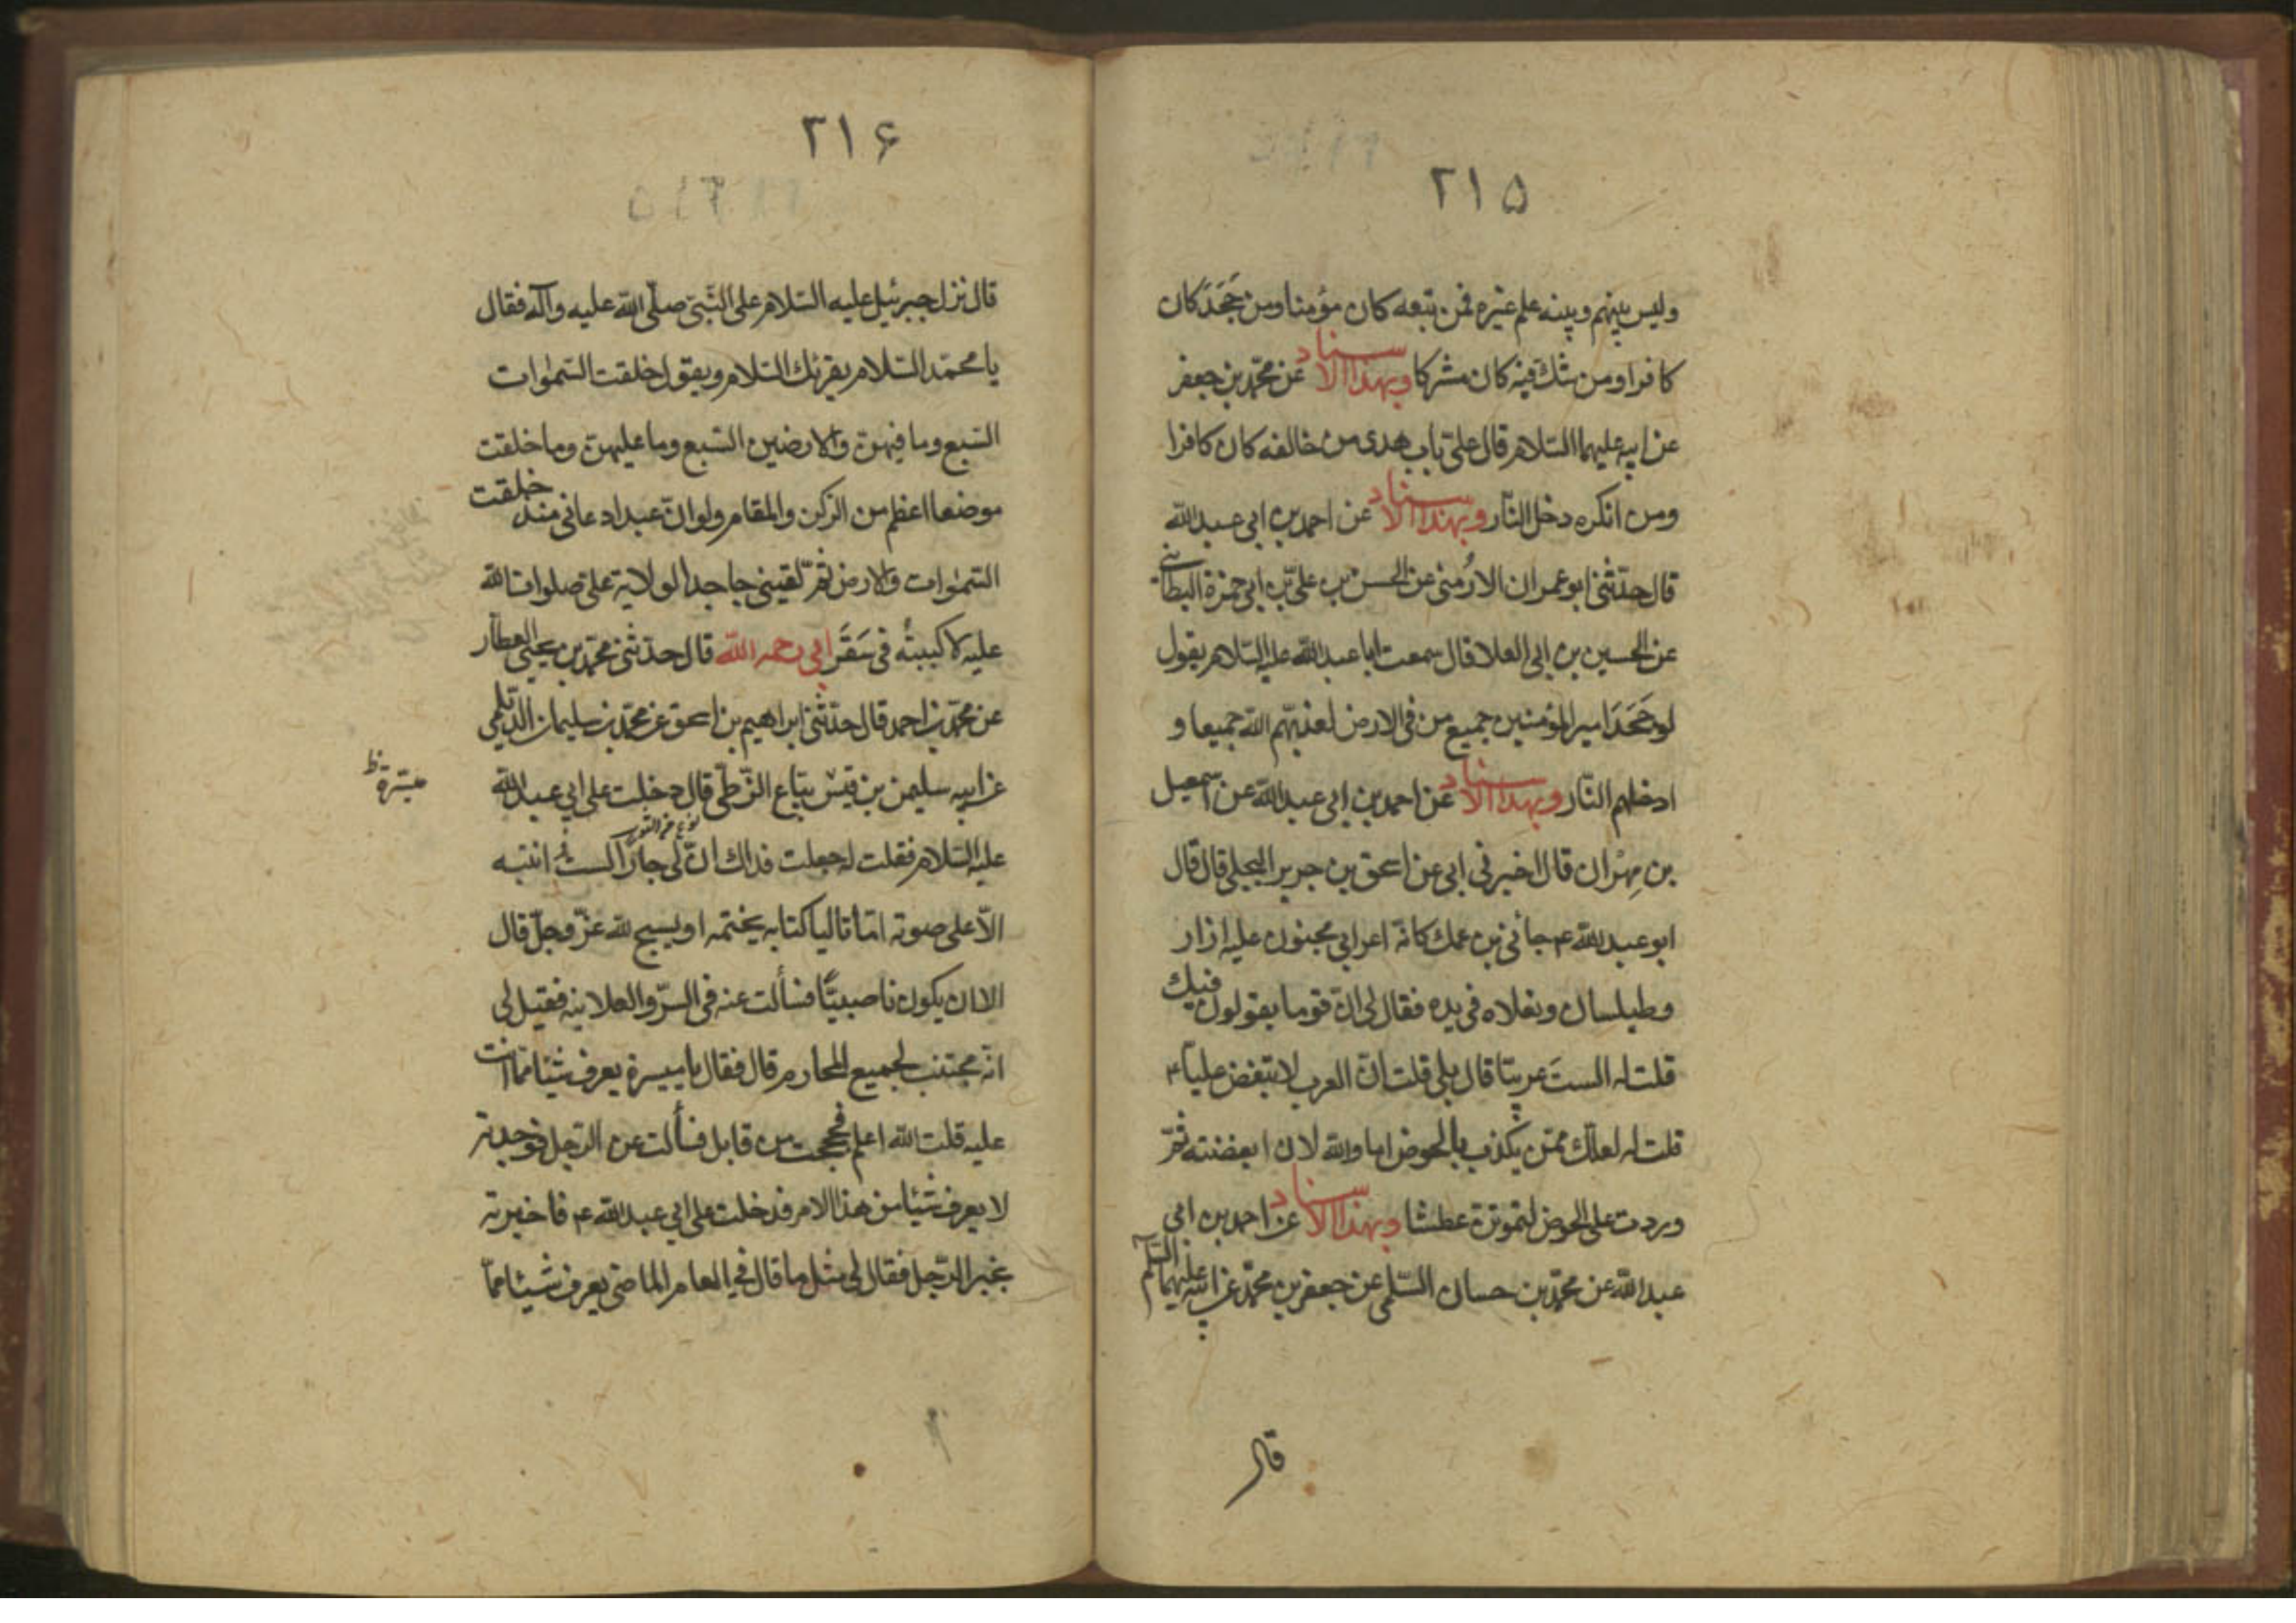 ۲۱۵
وليس بينهم وبينه علم غيره فمن تبعه كان مؤمنا ومن جَحَدَ كان
كافرا ومن شك فيه كان مشركا وبهذا الاسناد عن محمّد بن جعفر
عن ابيه عليهما السّلام قال علىّ باب هدى من خالفه كان كافرا
ومن انكره دخل النّار وبهذا الاسناد عن احمد بن ابى عبد الله
قال حدّثنى ابو عمران الارُمنى عن الحسن بن علىّ بن ابى حمزة البطائنى
عن الحسين بن ابى العلا قال سمعت ابا عبد الله عليه السّلام يقول
لو جَحَدَ امير المؤمنين جميع من فى الارض لعذبّهم الله جميعا و
ادخلهم النّار وبهذا الاسناد عن احمد بن ابى عبد الله عن اسمعيل
بن مِهْران قال اخبرنى ابى عن اسحق بن جرير البجلى قال قال
ابو عبد الله ع جائنى بن عمك كانّه اعرابى مجنون عليه ازار
وطيلسان ونعلاه فى يده فقال لى انّ قوما يقولون فيك
قلت له الستَ عربيّا قال بلى قلت انّ العرب لا تبغض عليّا ع
قلت له لعلّك ممّن يكذب بالحوض اما والله لان ابغضته ثمّ
وردت على الحوض لتموتنّ عطشا وبهذا الاسناد عن احمد بن ابى
عبد الله عن محمّد بن حسان السّلمى عن جعفر بن محمّد عن ابيه عليهما السّلم
قال
۲۱۶
قال نزل جبرئيل عليه السّلام على النّبىّ صلّى الله عليه وآله فقال
يا محمّد السّلام يقرئك السّلام ويقول خلقت السّموات
السّبع وما فيهنّ والارضين السّبع وما عليهنّ وما خلقت
موضعا اعظم من الرّكن والمقام ولو انّ عبدا دعانى منذ خلقت
السّموات والارض ثمّ لقينى جاحدا لولاية علىّ صلوات الله
عليه لاكببتهُ فى سَقَرَ ابى رحمه الله قال حدّثنى محمّد بن يحيى العطّار
عن محمّد بن احمد قال حدّثنى ابراهيم بن اسحق عن محمّد بن سليمان الدّيلمى
عن ابيه سليمن بن قيس بيّاع الزّطّى قال دخلت على ابى عبد الله
ميسّرة ظ
عليه السّلام فقلت له جعلت فداك انّ لى جارًا لستُ انتبه
الّا على صوته امّا تاليا كتابه يختمه او يسبح لله عزّ وجلّ قال
الا ان يكون ناصبيّاً فسألت عنه فى السرّ والعلانيه فقيل لى
انّه مجتنب لجميع المحارم قال فقال يا ميسرة يعرف شيئا ممّا انت
عليه قلت الله اعلم فحججت من قابل فسألت عن الرّجل فوجدته
لا يعرف شيئا من هذا الامر فدخلت على ابى عبد الله ع فاخبرته
بخبر الرّجل فقال لى مثل ما قال فى العام الماضى يعرف شيئا ممّا